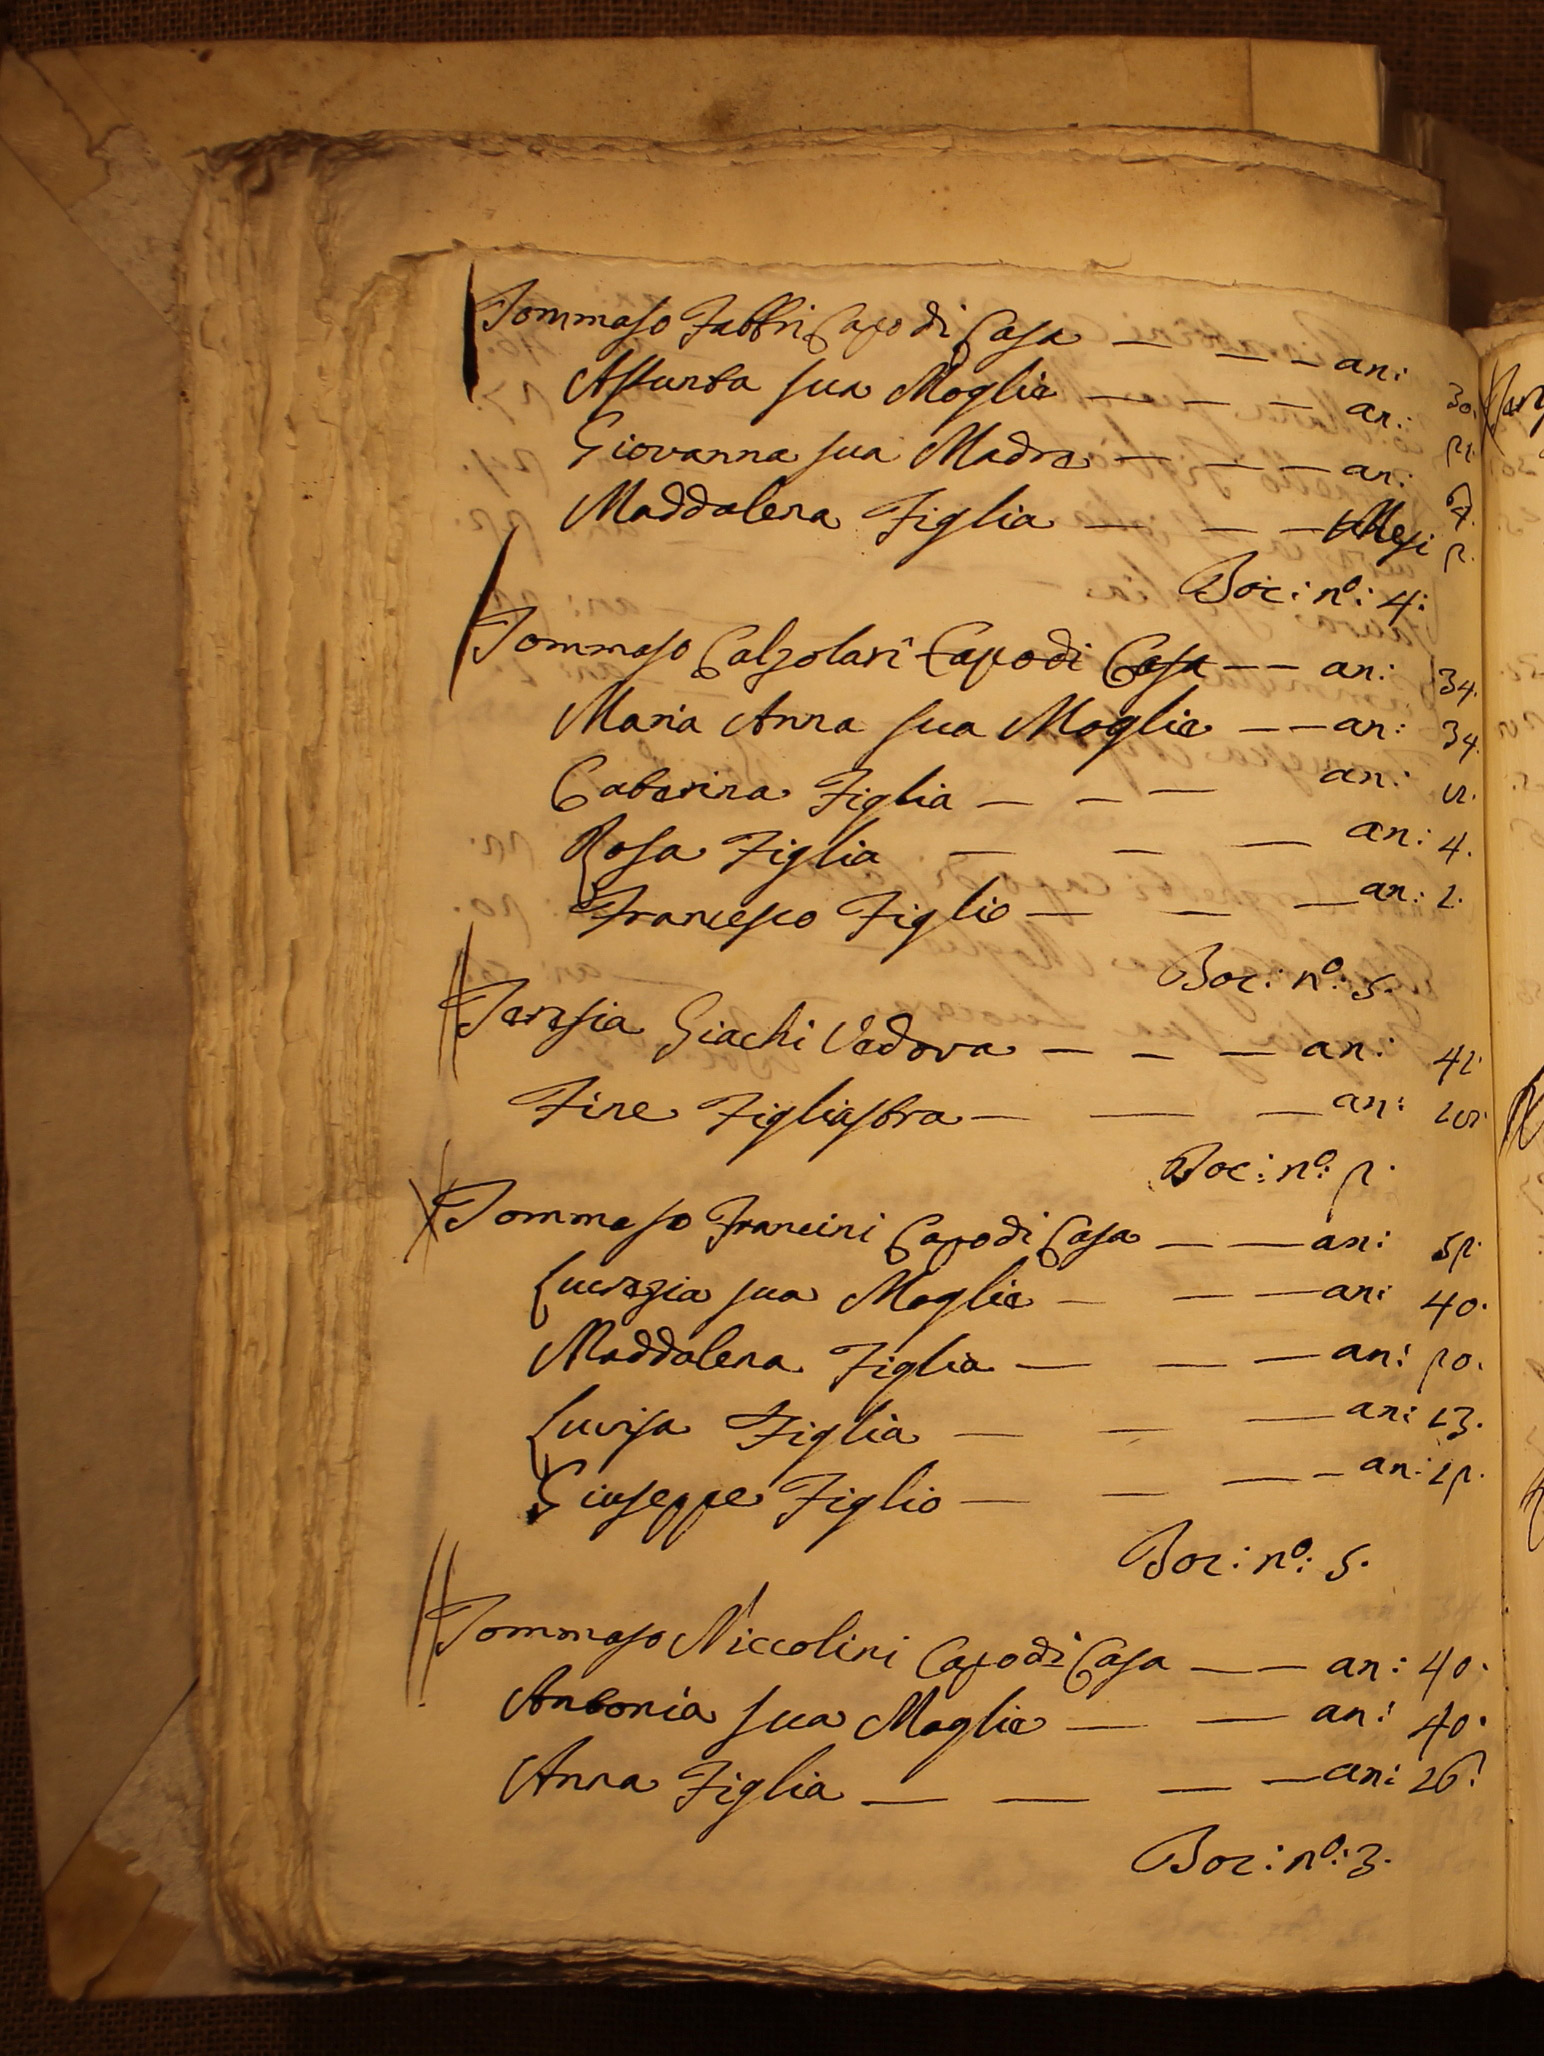 Tommaso Fabbri Capo di Casa — — — an: 30.
Assunta sua Moglie — — — an:
Giovanna sua Madre — — — an:
Maddalena Figlia — — — Mesi 2.
Boc: nº: 4:
Tommaso Calzolari Capo di Casa — — an: 34.
Maria Anna sua Moglie — — an: 34.
Caterina Figlia — — — an:
Rosa Figlia — — — an: 4.
Francesco Figlio — — — an: 1.
Boc: nº: 5.
Teresia Giachi Vedova — — — an:
Fine Figliastra — — — an:
Boc: nº: 2.
Tommaso Francini Capo di Casa — — an: 52.
Lucrezia sua Moglie — — — an: 40.
Maddalena Figlia — — — an: 20.
Luvisa Figlia — — — an: 13.
Giuseppe Figlio — — — — an: 12.
Boc: nº: 5.
Tommaso Niccolini Capo di Casa — — an: 40.
Antonia sua Moglie — — an: 40.
Anna Figlia — — — — an: 16.
Boc: nº: 3.